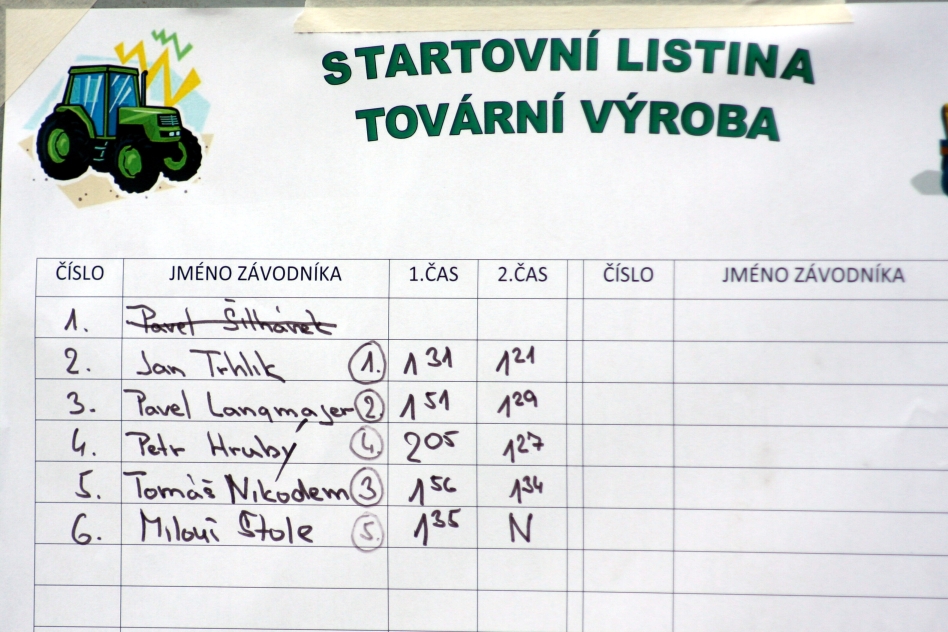 STARTOVNÍ LISTINA
TOVÁRNÍ VÝROBA
ČÍSLO JMÉNO ZÁVODNÍKA 1.ČAS 2.ČAS ČÍSLO JMÉNO ZÁVODNÍKA
1. Pavel Šilhánek
2. Jan Trhlík 1. 1 31 1 21
3. Pavel Langmajer 2 1 51 1 29
4. Petr Hrubý 4. 2 05 1 27
5. Tomáš Nikodem 3 1 56 1 34
6. Štole 5. 1 35 N